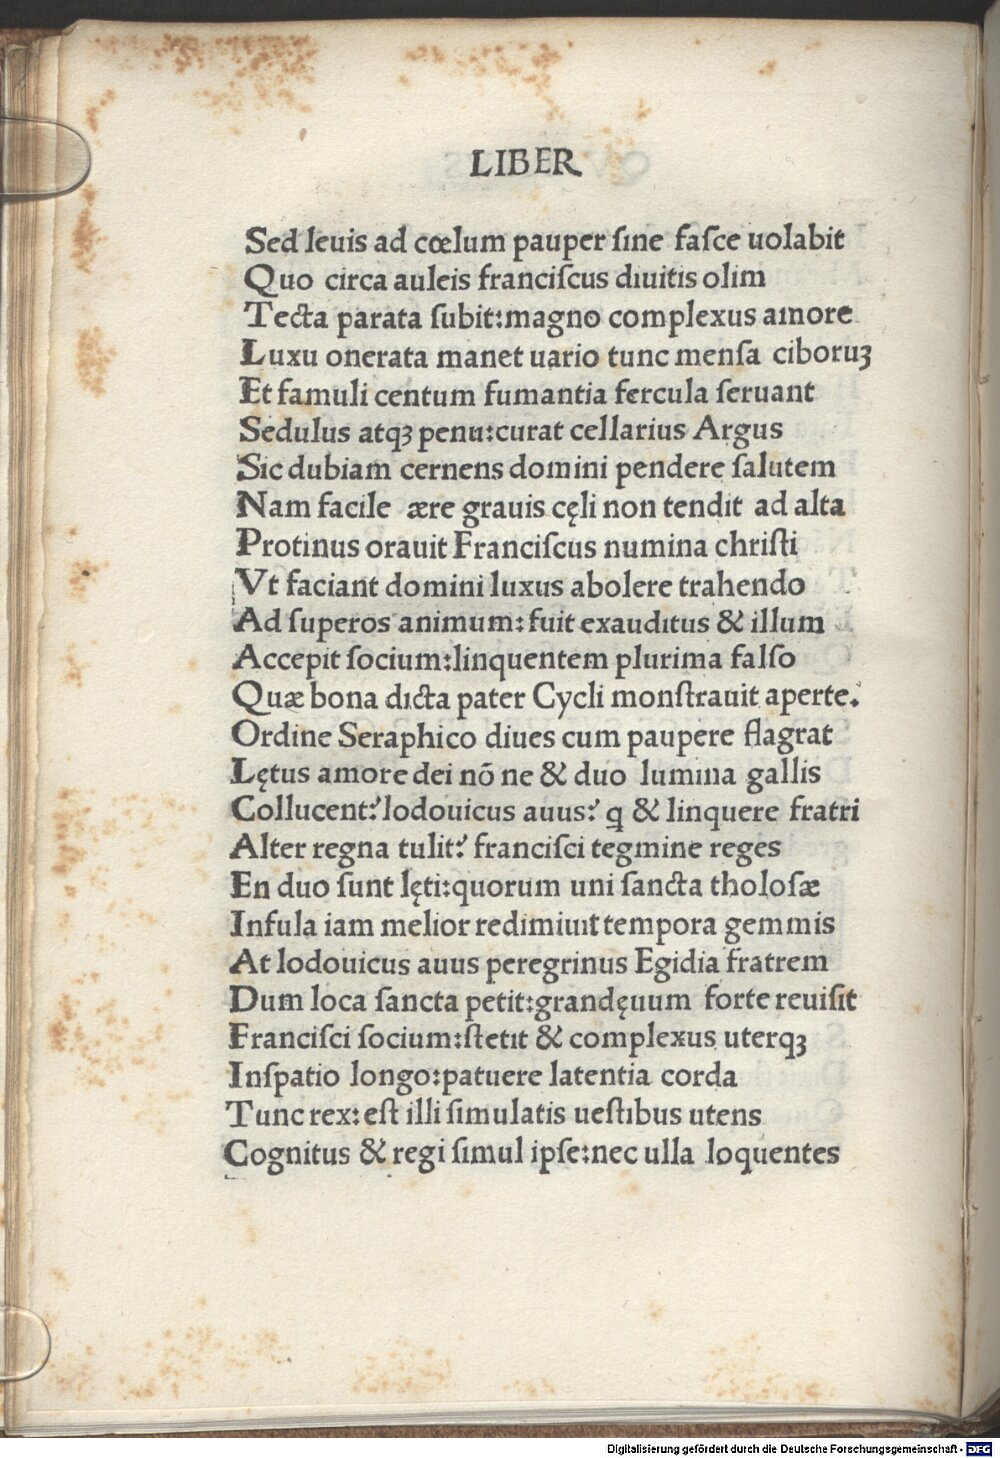 LIBER
Sed leuis ad cœlum pauper sine fasce uolabit
Quo circa auleis franciscus diuitis olim
Tecta parata subit:magno complexus amore
Luxu onerata manet uario tunc mensa ciboruꝫ
Et famuli centum fumantia fercula seruant
Sedulus atqꝫ penu:curat cellarius Argus
Sic dubiam cernens domini pendere salutem
Nam facile ære grauis cęli non tendit ad alta
Protinus orauit Franciscus numina christi
Vt faciant domini luxus abolere trahendo
Ad superos animum:fuit exauditus & illum
Accepit socium:linquentem plurima falso
Quæ bona dicta pater Cycli monstrauit aperte.
Ordine Seraphico diues cum paupere flagrat
Lętus amore dei nō ne & duo lumina gallis
Collucent?lodouicus auus? ꝗ & linquere fratri
Alter regna tulit? francisci tegmine reges
En duo sunt lęti:quorum uni sancta tholosæ
Infula iam melior redimiuit tempora gemmis
At lodouicus auus peregrinus Egidia fratrem
Dum loca sancta petit:grandęuum forte reuisit
Francisci socium:stetit & complexus uterqꝫ
Inspatio longo:patuere latentia corda
Tunc rex:est illi simulatis uestibus utens
Cognitus & regi simul ipse:nec ulla loquentes
Digitalisierung gefördert durch die Deutsche Forschungsgemeinschaft - DFG